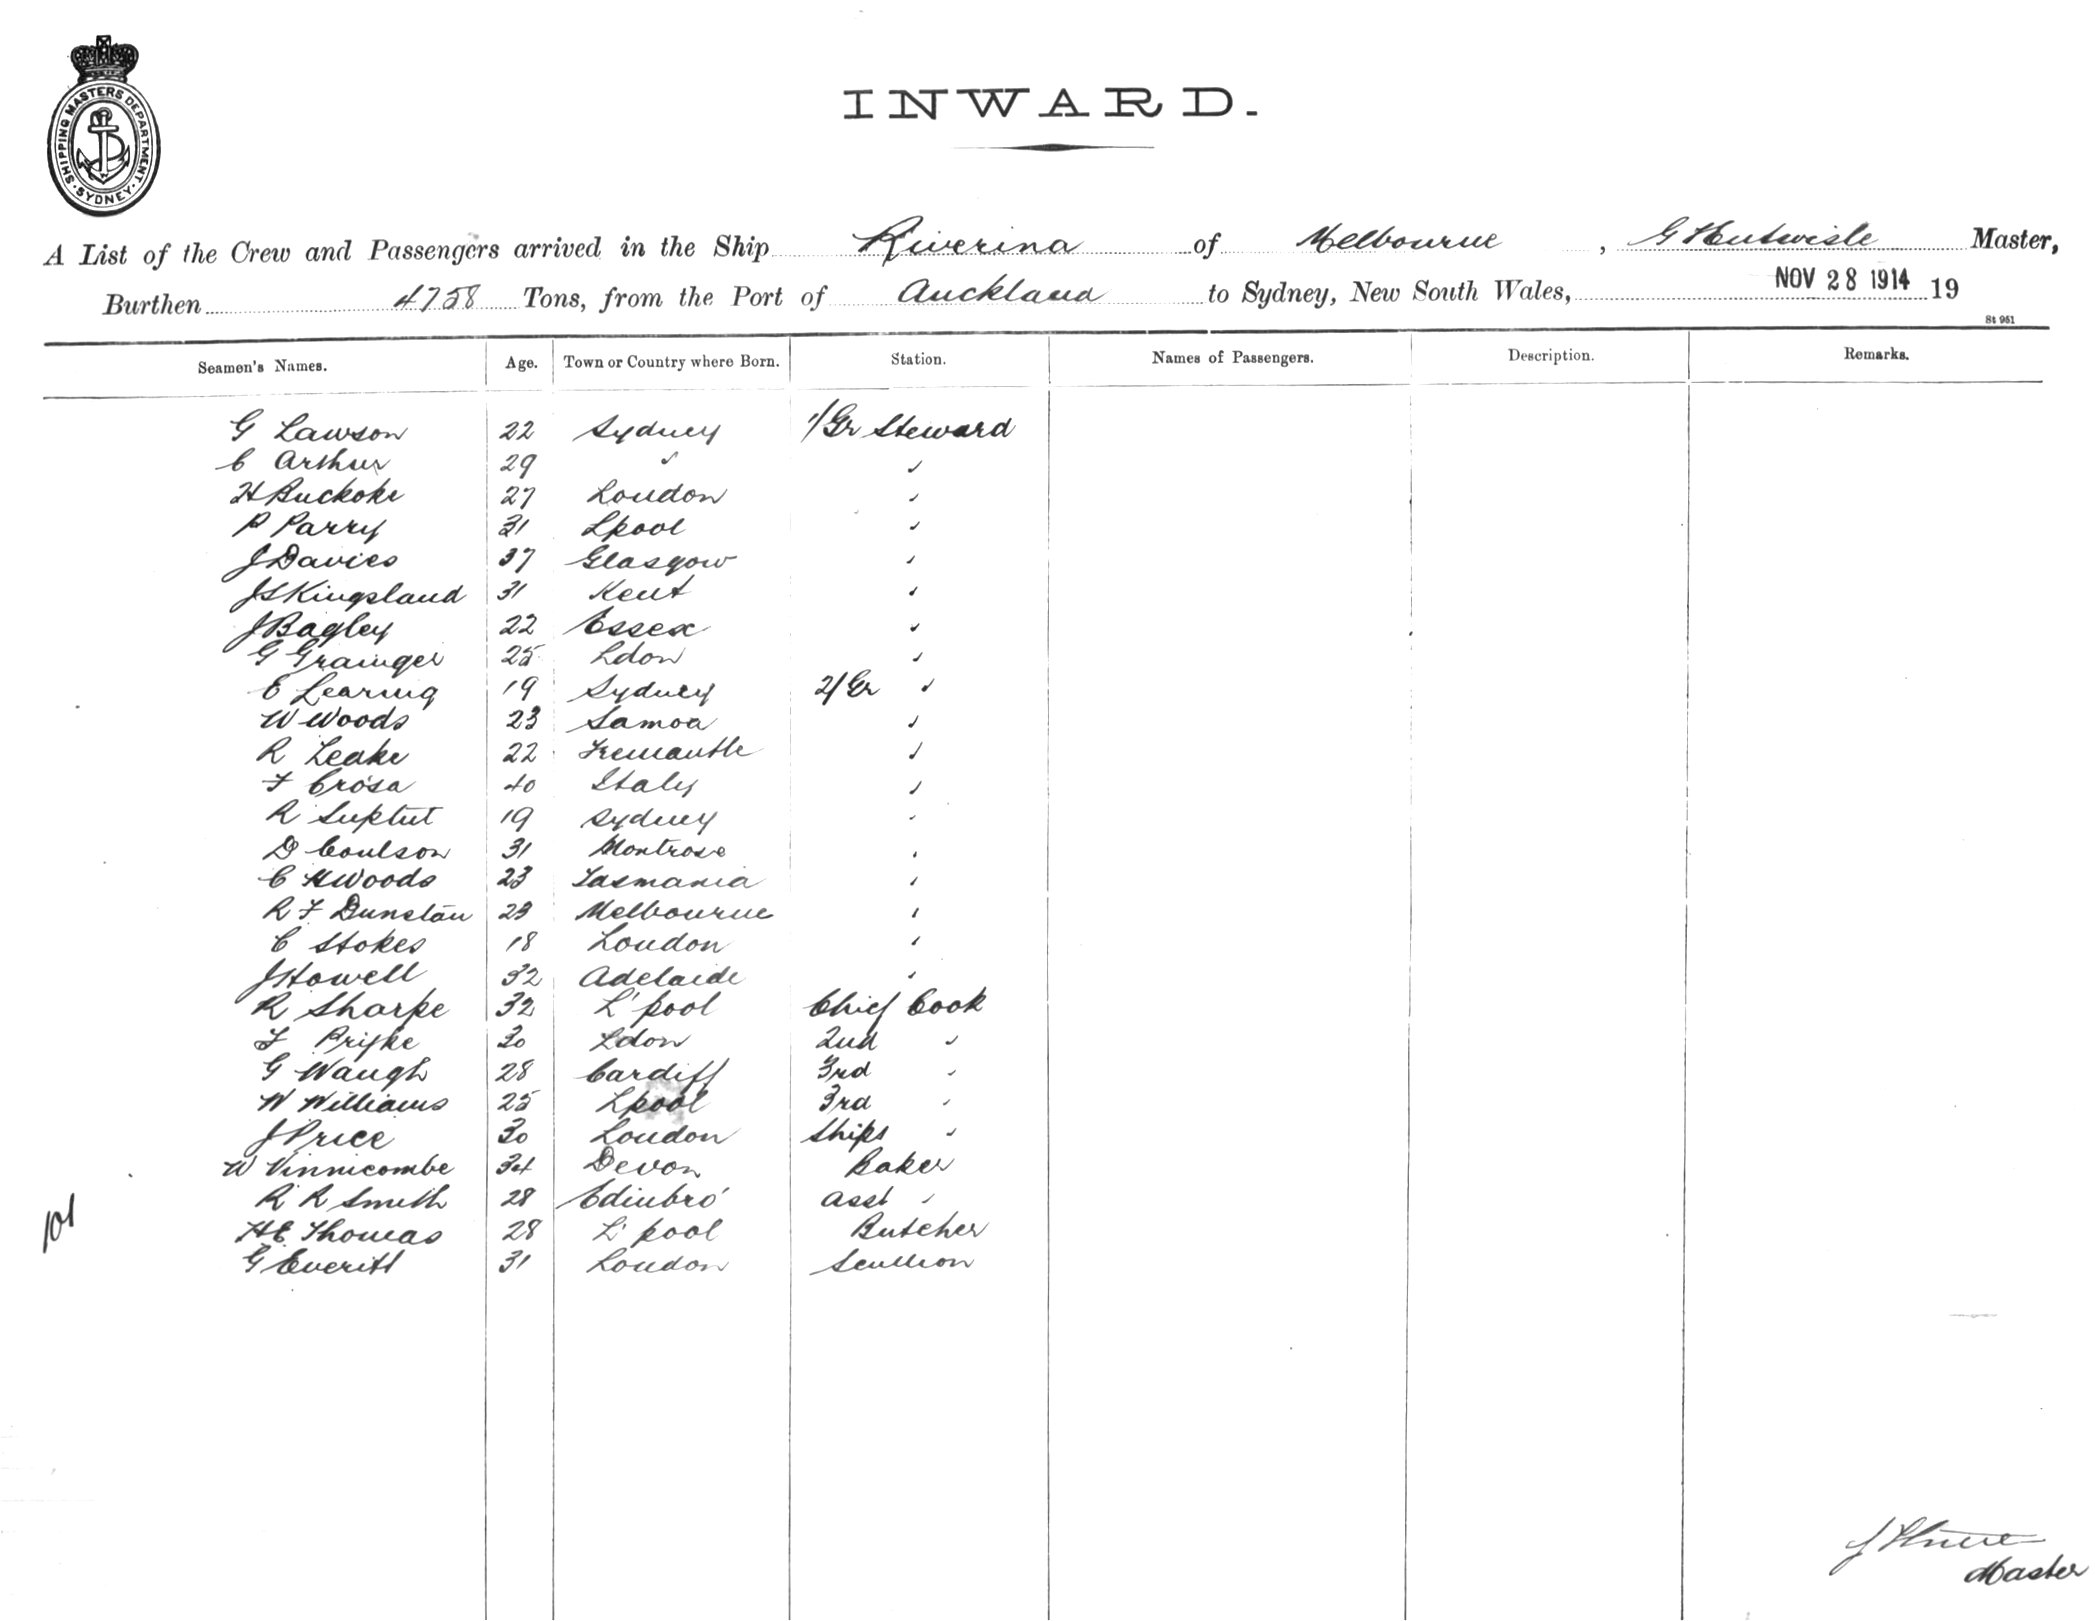 SHIPPING MASTERS DEPARTMENT · SYDNEY ·
INWARD.
A List of the Crew and Passengers arrived in the Ship Riverina of Melbourne, G Hentwisle Master,
Burthen 4758 Tons, from the Port of Auckland to Sydney, New South Wales, NOV 28 1914 19
St 951
Seamen's Names. Age. Town or Country where Born. Station. Names of Passengers. Description. Remarks.
G Lawson 22 Sydney 1/Gr Steward
C Arthur 29 " "
H Buckoke 27 London "
P Parry 31 Lpool "
J Davies 37 Glasgow "
J S Kingsland 31 Kent "
J Bagley 22 Essex "
G Grainger 25 Ldon "
E Learing 19 Sydney 2/Gr "
W Woods 23 Samoa "
R Leake 22 Fremantle "
F Crosa 40 Italy "
R 19 Sydney "
D Coulson 31 Montrose "
C H Woods 23 Tasmania "
R F Dunstan 23 Melbourne "
C Stokes 18 London "
J Howell 32 Adelaide "
R Sharpe 32 L'pool Chief Cook
F Pryke 30 Ldon 2nd "
G Waugh 28 Cardiff 3rd "
W Williams 25 Lpool 3rd "
J Price 30 London Ships "
W Vinnicombe 34 Devon Baker
R R Smith 28 Edinbro' Asst "
H E Thomas 28 L'pool Butcher
G Everitt 31 London Scullion
101
Master